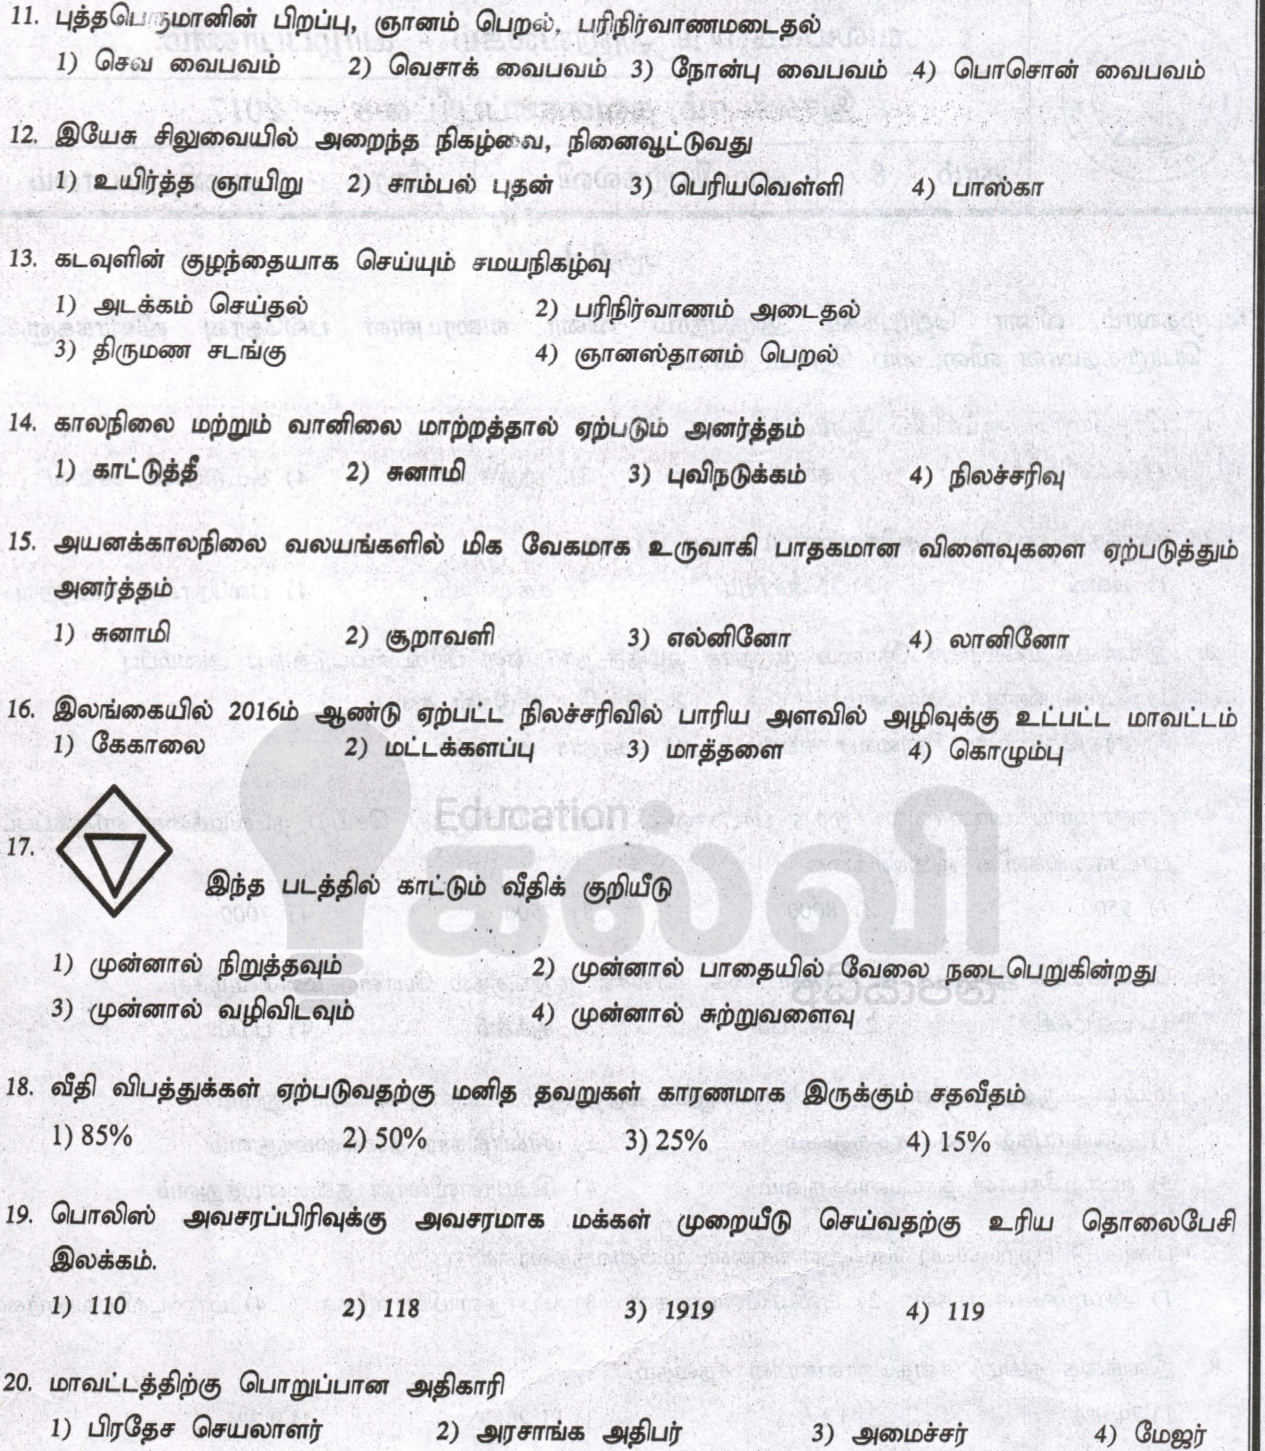 11. புத்தபெருமானின் பிறப்பு, ஞானம் பெறல், பரிநிர்வாணமடைதல்
1) செவ வைபவம் 2) வெசாக் வைபவம் 3) நோன்பு வைபவம் 4) பொசொன் வைபவம்
12. இயேசு சிலுவையில் அறைந்த நிகழ்வை, நினைவூட்டுவது
1) உயிர்த்த ஞாயிறு 2) சாம்பல் புதன் 3) பெரியவெள்ளி 4) பாஸ்கா
13. கடவுளின் குழந்தையாக செய்யும் சமயநிகழ்வு
1) அடக்கம் செய்தல் 2) பரிநிர்வாணம் அடைதல்
3) திருமண சடங்கு 4) ஞானஸ்தானம் பெறல்
14. காலநிலை மற்றும் வானிலை மாற்றத்தால் ஏற்படும் அனர்த்தம்
1) காட்டுத்தீ 2) சுனாமி 3) புவிநடுக்கம் 4) நிலச்சரிவு
15. அயனக்காலநிலை வலயங்களில் மிக வேகமாக உருவாகி பாதகமான விளைவுகளை ஏற்படுத்தும்
அனர்த்தம்
1) சுனாமி 2) சூறாவளி 3) எல்னினோ 4) லானினோ
16. இலங்கையில் 2016ம் ஆண்டு ஏற்பட்ட நிலச்சரிவில் பாரிய அளவில் அழிவுக்கு உட்பட்ட மாவட்டம்
1) கேகாலை 2) மட்டக்களப்பு 3) மாத்தளை 4) கொழும்பு
Education
கல்வி
අධ්‍යාපන
17. இந்த படத்தில் காட்டும் வீதிக் குறியீடு
1) முன்னால் நிறுத்தவும் 2) முன்னால் பாதையில் வேலை நடைபெறுகின்றது
3) முன்னால் வழிவிடவும் 4) முன்னால் சுற்றுவளைவு
18. வீதி விபத்துக்கள் ஏற்படுவதற்கு மனித தவறுகள் காரணமாக இருக்கும் சதவீதம்
1) 85% 2) 50% 3) 25% 4) 15%
19. பொலிஸ் அவசரப்பிரிவுக்கு அவசரமாக மக்கள் முறையீடு செய்வதற்கு உரிய தொலைபேசி
இலக்கம்.
1) 110 2) 118 3) 1919 4) 119
20. மாவட்டத்திற்கு பொறுப்பான அதிகாரி
1) பிரதேச செயலாளர் 2) அரசாங்க அதிபர் 3) அமைச்சர் 4) மேஜர்